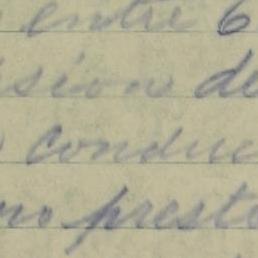 entre 6
sion de
conduc
ro presta